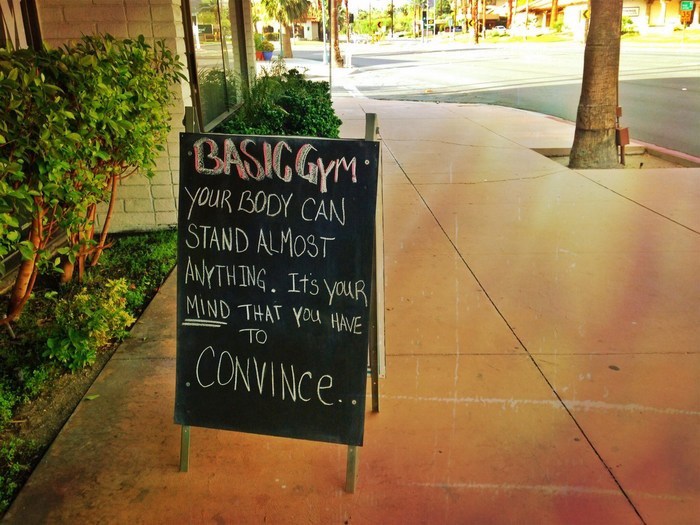 BASIC GYM
YOUR BODY CAN
STAND ALMOST
ANYTHING. It's YOUR
MIND THAT YOU HAVE
TO
CONVINCE.